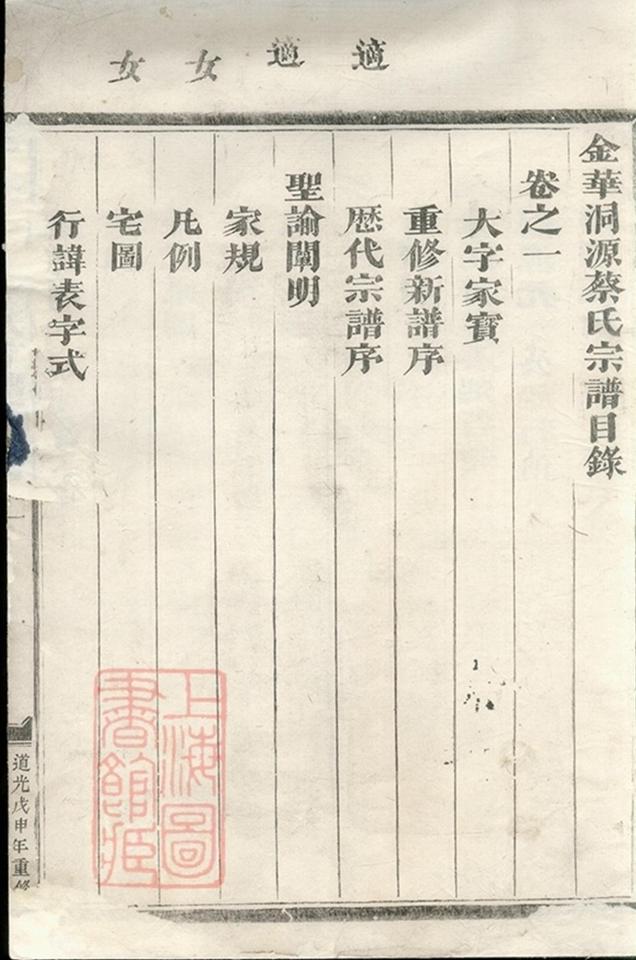 適
適
女
女
金華洞源蔡氏宗譜目錄
卷之一
大字家寳
重修新譜序
歴代宗譜序
聖諭闡明
家規
凡例
宅圖
行諱表字式
道光戊申年重修
上海圖
書館藏